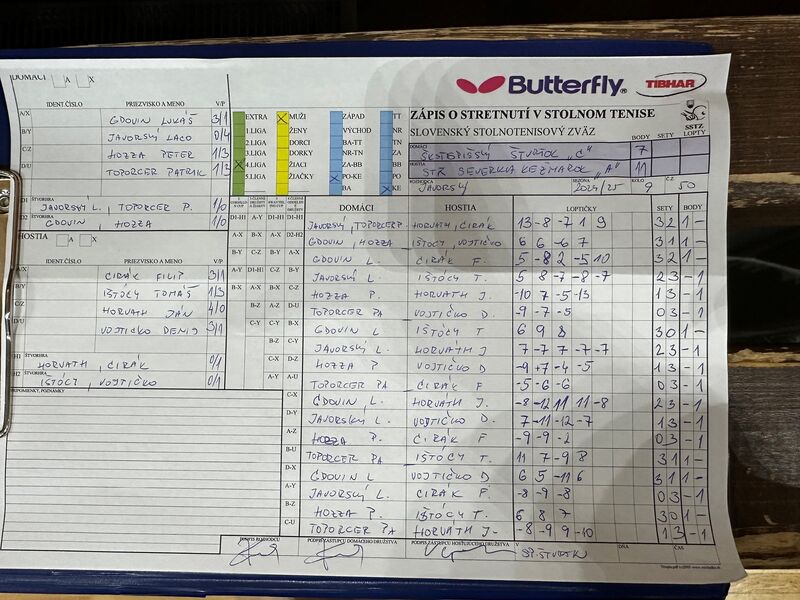 DOMÁCI A X
IDENT.ČÍSLO PRIEZVISKO A MENO V/P
A/X GDOVIN LUKÁŠ 3/1
B/Y JAVORSKÝ LACO 0/4
C/Z HOZZA PETER 1/3
D/U TOPORCER PATRIK 1/3
D1 ŠTVORHRA JAVORSKÝ L., TOPORCER P. 1/0
D2 ŠTVORHRA GDOVIN, HOZZA 1/0
HOSTIA A X
IDENT.ČÍSLO PRIEZVISKO A MENO V/P
A/X CIRÁK FILIP 3/1
B/Y IŠTÓCY TOMÁŠ 1/3
C/Z HORVATH JÁN 4/0
D/U VOJTIČKO DENIS 3/1
H1 ŠTVORHRA HORVATH, CIRÁK 0/1
H2 ŠTVORHRA IŠTÓCY, VOJTIČKO 0/1
PRIPOMIENKY, POZNÁMKY
Butterfly TIBHAR
EXTRA MUŽI ZÁPAD TT
1.LIGA ŽENY VÝCHOD NR
2.LIGA DORCI BA-TT TN
3.LIGA DORKY NR-TN ZA
4.LIGA ŽIACI ZA-BB BB
5.LIGA ŽIAČKY PO-KE PO
BA KE
ZÁPIS O STRETNUTÍ V STOLNOM TENISE
SLOVENSKÝ STOLNOTENISOVÝ ZVÄZ
SSTZ
BODY LOPTY
DOMÁCI SPIŠSKÝ ŠTVRTOK „C" 7
HOSTIA STK SEVERKA KEŽMAROK „A" 11
ROZHODCA JAVORSKÝ SEZÓNA 2024/25 KOLO 9 Č.Z. 50
DOMÁCI HOSTIA LOPTIČKY SETY BODY
D1-H1 JAVORSKÝ, TOPORCER P. HORVATH, CIRÁK 13 -8 -7 1 9 3 2 1 -
D2-H2 GDOVIN, HOZZA IŠTÓCY, VOJTIČKO 6 6 -6 7 3 1 1 -
GDOVIN L. CIRÁK F. 5 -8 2 -5 10 3 2 1 -
JAVORSKÝ L. IŠTÓCY T. 5 8 -7 -8 -7 2 3 - 1
HOZZA P. HORVATH J. -10 7 -5 -13 1 3 - 1
D-U TOPORCER PA VOJTIČKO D. -9 -7 -5 0 3 - 1
B-X GDOVIN L. IŠTÓCY T 6 9 8 3 0 1 -
C-Y JAVORSKÝ L. HORVATH J 7 -7 7 -7 -7 2 3 - 1
D-Z HOZZA P VOJTIČKO D -9 +7 -4 -5 1 3 - 1
A-U TOPORCER PA CIRÁK F -5 -6 -6 0 3 - 1
C-X GDOVIN L. HORVÁTH J. -8 -12 11 11 -8 2 3 - 1
D-Y JAVORSKÝ L. VOJTIČKO D. 7 -11 -12 -7 1 3 - 1
A-Z HOZZA P. CIRÁK F -9 -9 -2 0 3 - 1
B-U TOPORCER PA IŠTÓCY T 11 7 -9 8 3 1 1 -
D-X GDOVIN L VOJTIČKO D 6 5 -11 6 3 1 1 -
A-Y JAVORSKÝ L. CIRÁK F. -8 -9 -8 0 3 - 1
B-Z HOZZA P. IŠTÓCY T. 6 8 7 3 0 1 -
C-U TOPORCER PA HORVATH J. -8 -9 9 -10 1 3 - 1
PODPIS ROZHODCU PODPIS ZÁSTUPCU DOMÁCEHO DRUŽSTVA PODPIS ZÁSTUPCU HOSŤUJÚCEHO DRUŽSTVA V SP. ŠTVRTOK DŇA ČAS